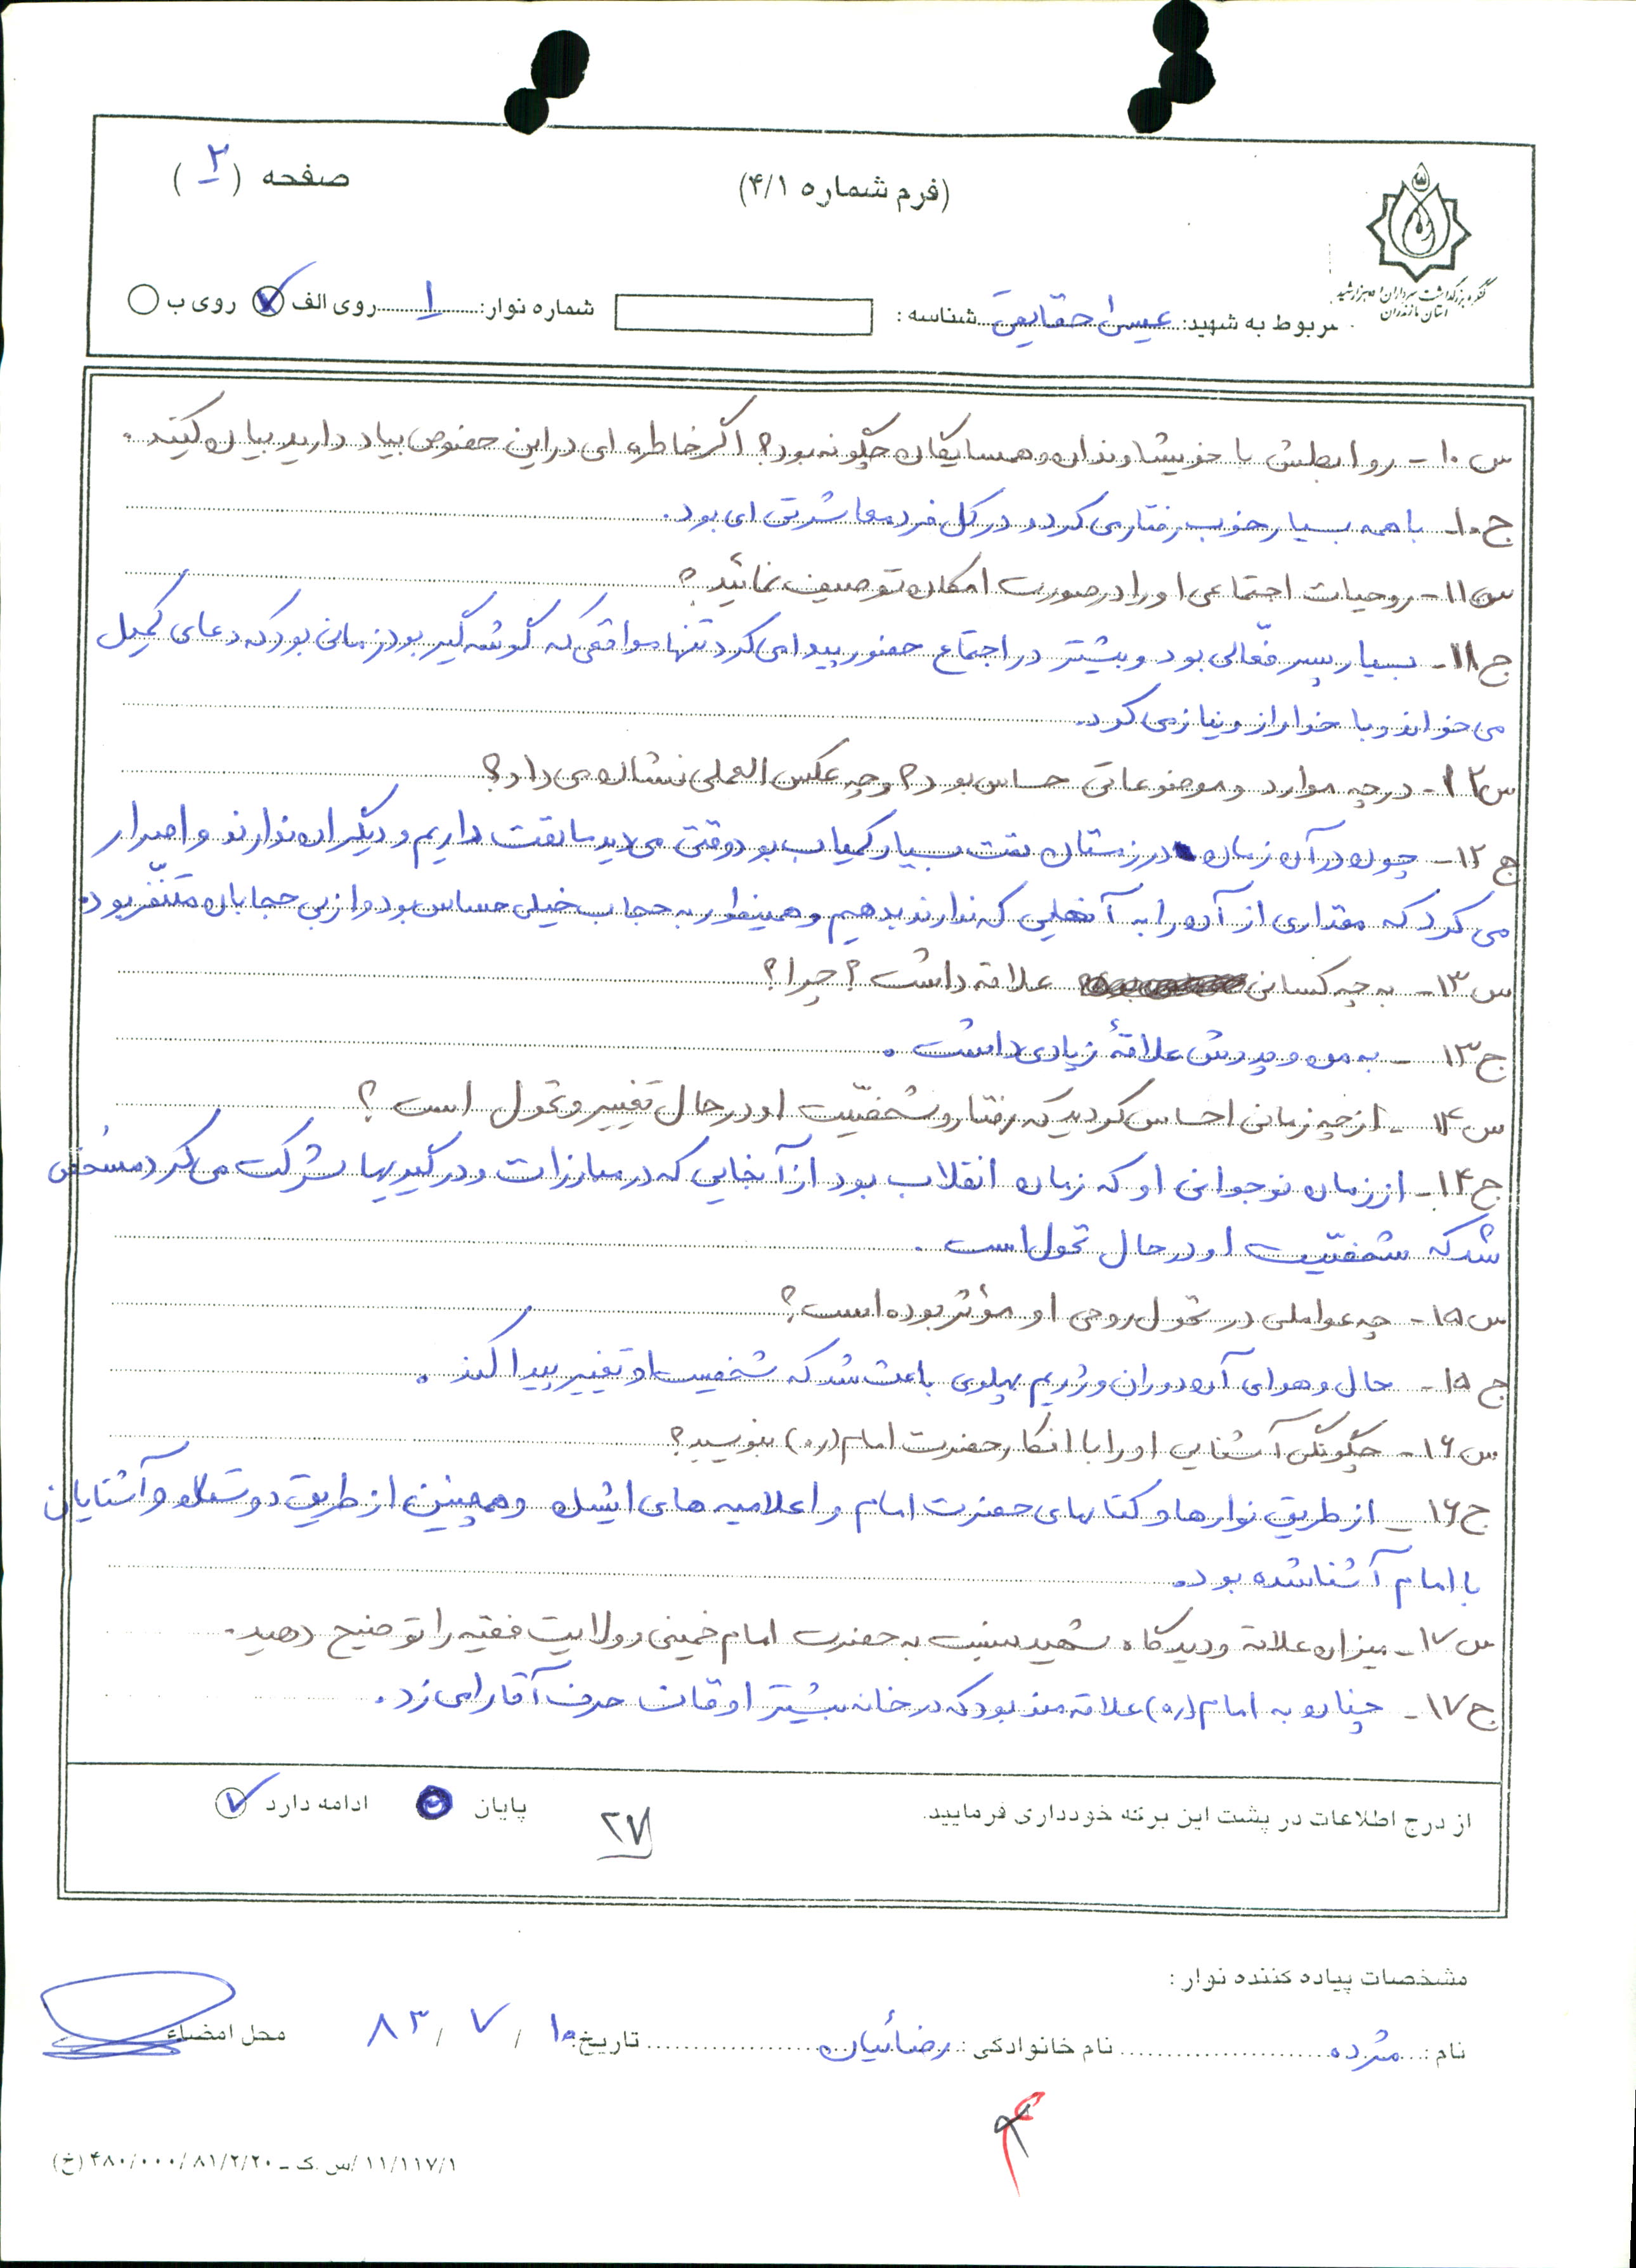 (فرم شماره ۴/۱)
صفحه (۲)
کنگره بزرگداشت سرداران و ده هزار شهید
استان مازندران
مربوط به شهید: عیسی حقایقی شناسه:
شماره نوار: ۱ روی الف روی ب
س۱۰- روابطش با خویشاوندان و همسایگان چگونه بود؟ اگر خاطره ای در این خصوص بیاد دارید بیان کنید.
ج۱۰- با همه بسیار خوب رفتار می کرد و در کل فرد معاشرتی ای بود.
س۱۱- روحیات اجتماعی او را در صورت امکان توصیف نمائید؟
ج۱۱- بسیار پسر فعّالی بود و بیشتر در اجتماع حضور پیدا می کرد تنها مواقعی که گوشه گیر بود زمانی بود که دعای کمیل
می خواند و با خدا راز و نیاز می کرد.
س۱۲- در چه موارد و موضوعاتی حساس بود؟ و چه عکس العملی نشان می داد؟
ج۱۲- چون در آن زمان در زمستان نفت بسیار کمیاب بود وقتی می دید ما نفت داریم و دیگران ندارند و اصرار
می کرد که مقداری از آن را به آنهایی که ندارند بدهیم و همینطور به حجاب خیلی حساس بود و از بی حجابان متنفّر بود.
س۱۳- به چه کسانی علاقه داشت؟ چرا؟
ج۱۳- به من و پدرش علاقهٔ زیادی داشت.
س۱۴- از چه زمانی احساس کردید که رفتار و شخصیّت او در حال تغییر و تحول است؟
ج۱۴- از زمان نوجوانی او که زمان انقلاب بود از آنجایی که در مبارزات و درگیریها شرکت می کرد مشخص
شد که شخصیّت او در حال تحول است.
س۱۵- چه عواملی در تحول روحی او مؤثر بوده است؟
ج۱۵- حال و هوای آن دوران و رژیم پهلوی باعث شد که شخصیت او تغییر پیدا کند.
س۱۶- چگونگی آشنایی او را با افکار حضرت امام(ره) بنویسید؟
ج۱۶- از طریق نوارها و کتابهای حضرت امام و اعلامیه های ایشان و همچنین از طریق دوستان و آشنایان
با امام آشنا شده بود.
س۱۷- میزان علاقه و دیدگاه شهید نسبت به حضرت امام خمینی و ولایت فقیه را توضیح دهید.
ج۱۷- چنان به امام(ره) علاقه مند بود که در خانه بیشتر اوقات حرف آقا را می زد.
از درج اطلاعات در پشت این برگه خودداری فرمایید.
۲۷
پایان ادامه دارد
مشخصات پیاده کننده نوار:
نام: مژده نام خانوادگی: رضائیان تاریخ: ۱۰ / ۷ / ۸۳ محل امضاء
۱۱/۱۱۷/۱ /س ک ـ ۴۸۰/۰۰۰/۸۱/۲/۲۰ (خ)